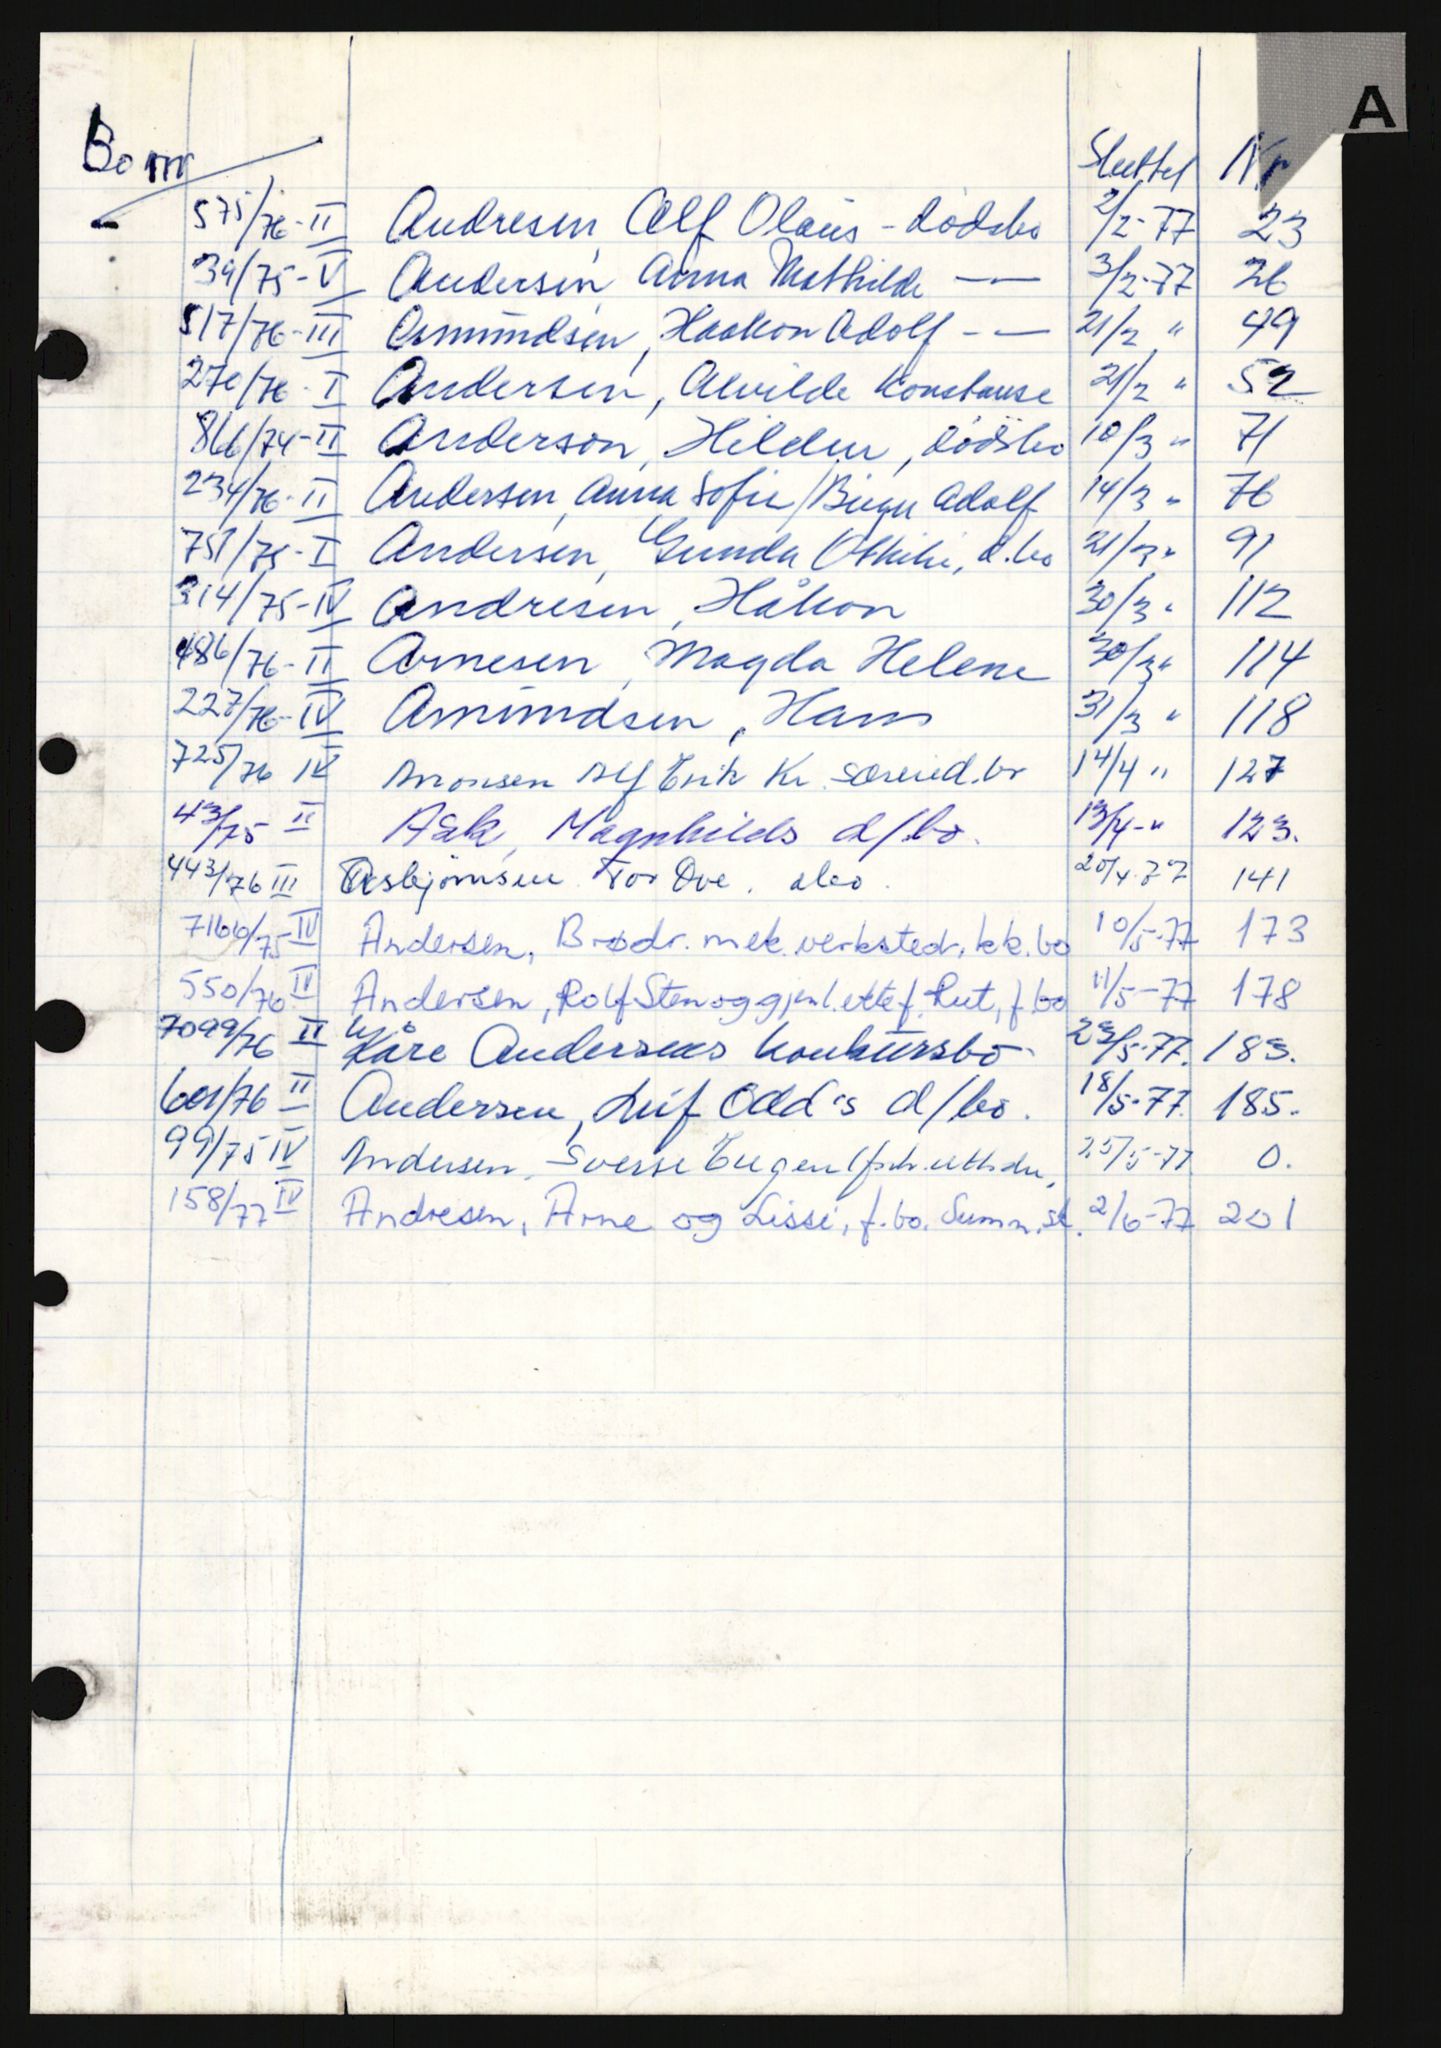 A
Bo nr Sluttet Nr
575/76-II Andresen, Alf Olaus - dødsbo 2/2-77 23
39/75-V Andersen, Anna Mathilde — 3/2-77 26
517/76-III Asmundsen, Haakon Adolf - — 21/2 " 49
270/76-I Andersen, Alvilde Konstanse 21/2 " 52
866/74-II Anderson, Hildur, dødsbo 10/3 " 71
234/76-II Andersen, Anna Sofie/Birger Adolf 14/3 " 76
751/75-I Andersen, Gunda Othilie, d.bo 21/3 " 91
314/75-IV Andresen, Håkon 30/3 " 112
486/76-II Arnesen, Magda Helene 30/3 " 114
227/76-IV Amundsen, Hans 31/3 " 118
725/76 IV Aronsen Alf Erik Kr. 14/4 " 127
43/75 II Ask, Magnhilds d/bo. 13/4-" 123.
443/76 III Asbjørnsen Tor Ove. dbo. 20/4-77 141
7166/75-IV Andersen, Brødr. mek.verksted, kk.bo 10/5-77 173
550/76 IV Andersen, Rolf Sten og gjenl. ektef. Rut, f.bo 11/5-77 178
7099/76 II Kåre Andersens konkursbo 23/5-77. 183.
601/76 II Andersen, Leif Odd's d/bo. 18/5-77. 185.
99/75 IV Andersen, Sverre Eugen 25/5-77 0.
158/77 IV Andresen, Arne og Lissi, f.bo. Summ.sk. 2/6-77 201